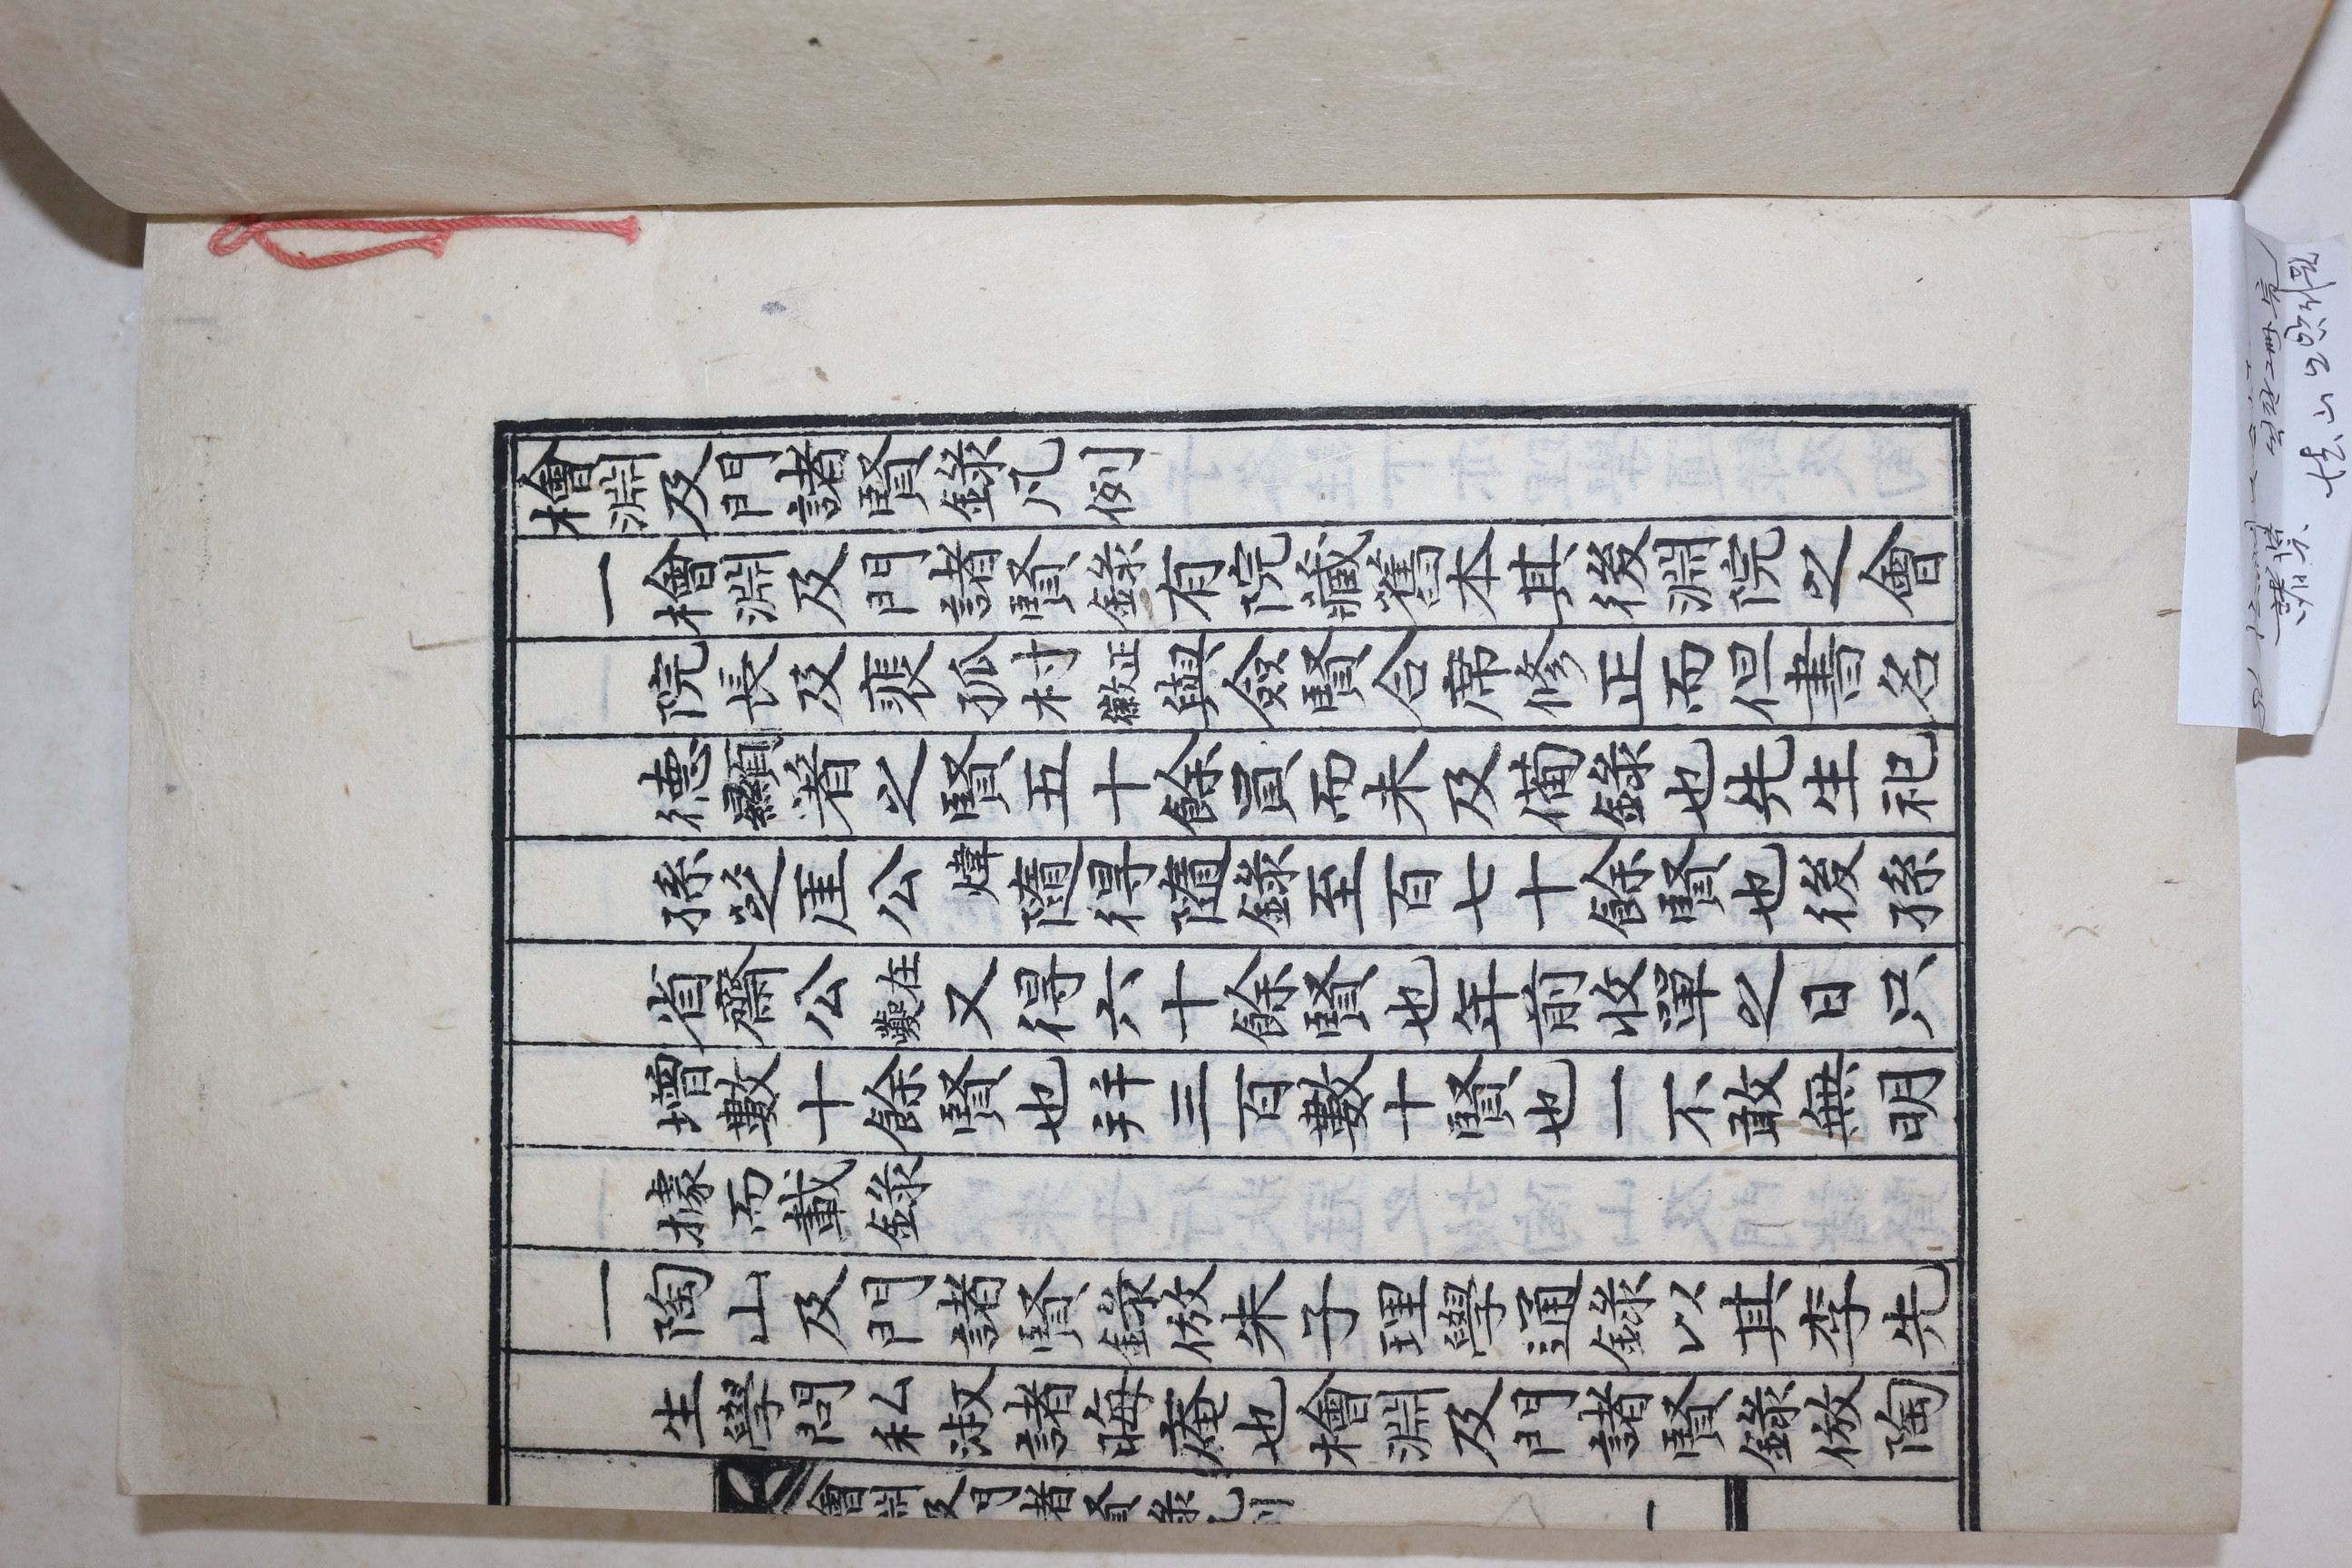 檜淵及門諸賢錄凡例
一檜淵及門諸賢錄有院藏舊本其後淵院之會
院長及裴孤村正徽與僉賢合席修正而但書名
德顯著之賢五十餘員而未及備錄也先生祀
孫芝厓公煒隨得隨錄至百七十餘賢也後孫
省齋公在夔又得六十餘賢也年前收單之日只
增數十餘賢也幷三百數十賢也一不敢無明
據而載錄
一陶山及門諸賢錄倣朱子理學通錄以其李先
生學問私淑諸晦庵也檜淵及門諸賢錄倣陶
檜淵及門諸賢錄凡例 一